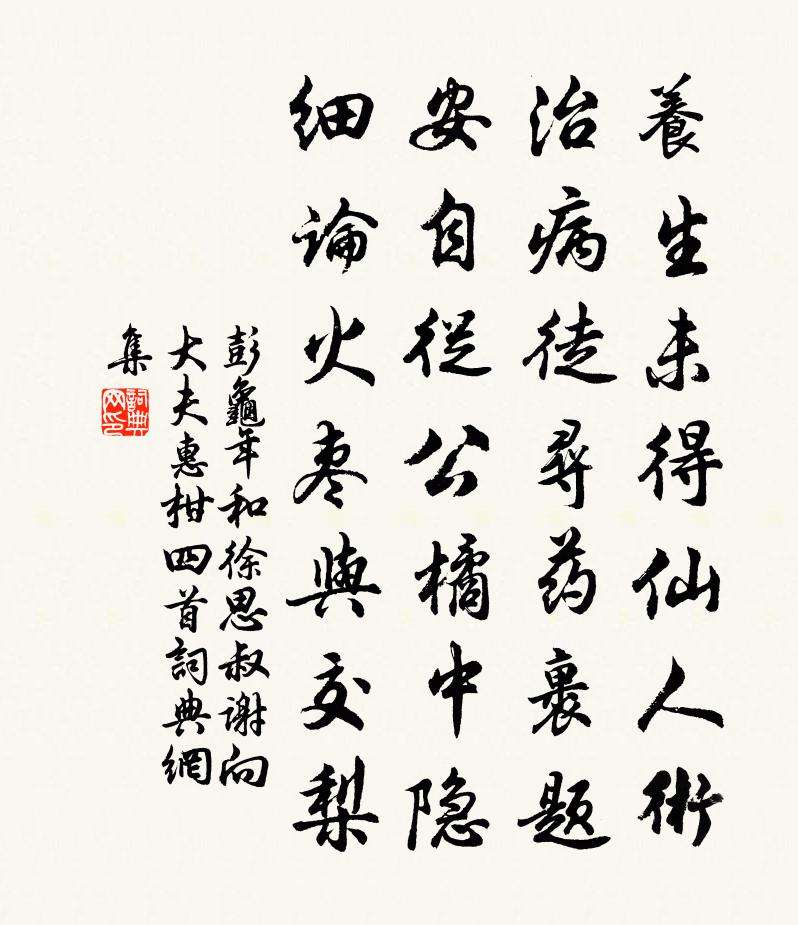 養生未得仙人術
治病徒尋药裹題
安自從公橘中隐
细論火枣與交梨
彭龜年和徐思叔谢向
大夫惠柑四首詞典網
集
詞典
网印